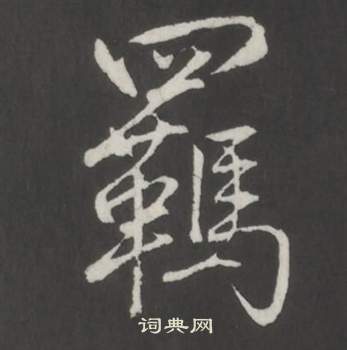 羈
词典网